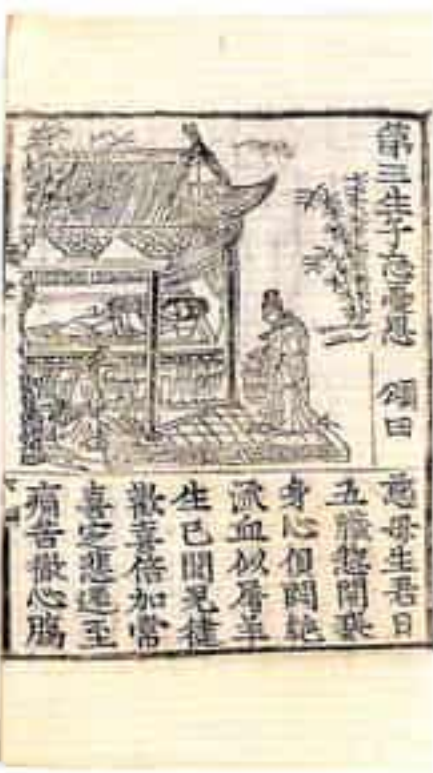 第三生子忘憂恩 頌曰
慈母生君日
五臟惣開張
身心俱悶絶
流血似屠羊
生已聞兒健
歡喜倍加常
喜定悲還至
痛苦徹心腸